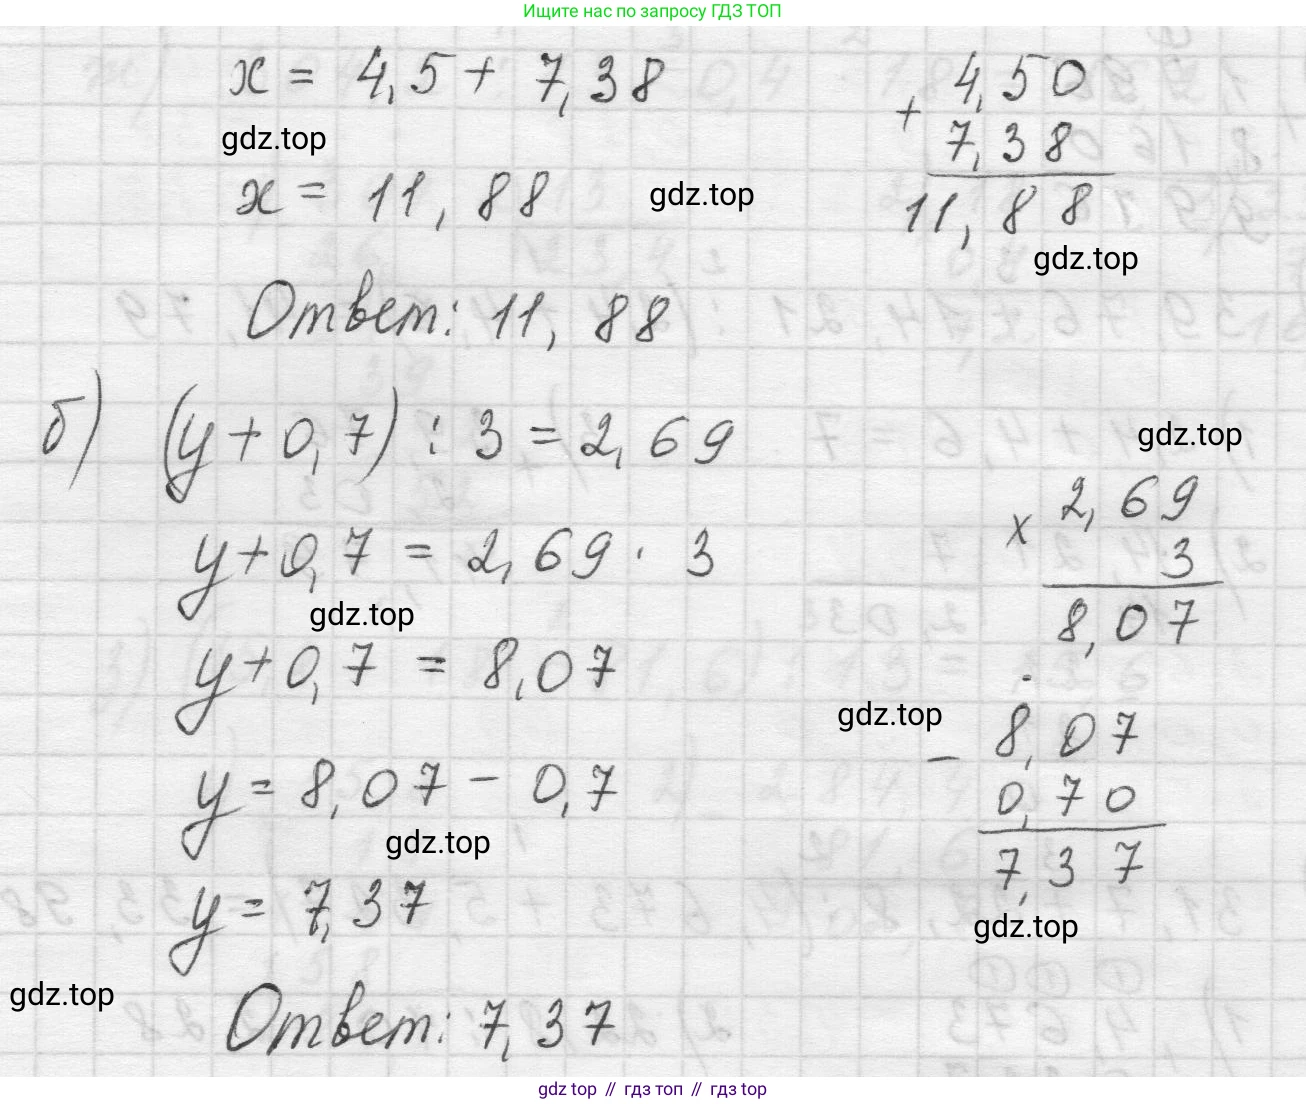 Ищите нас по запросу ГДЗ ТОП
x = 4,5 + 7,38
gdz.top
x = 11,88
gdz.top
+ 4,50
7,38
11,88
gdz.top
Ответ: 11,88
б) (y + 0,7) : 3 = 2,69
gdz.top
y + 0,7 = 2,69 · 3
gdz.top
× 2,69
3
8,07
y + 0,7 = 8,07
gdz.top
y = 8,07 - 0,7
gdz.top
- 8,07
0,70
7,37
gdz.top
y = 7,37
gdz.top
Ответ: 7,37
gdz top // гдз топ // гдз top